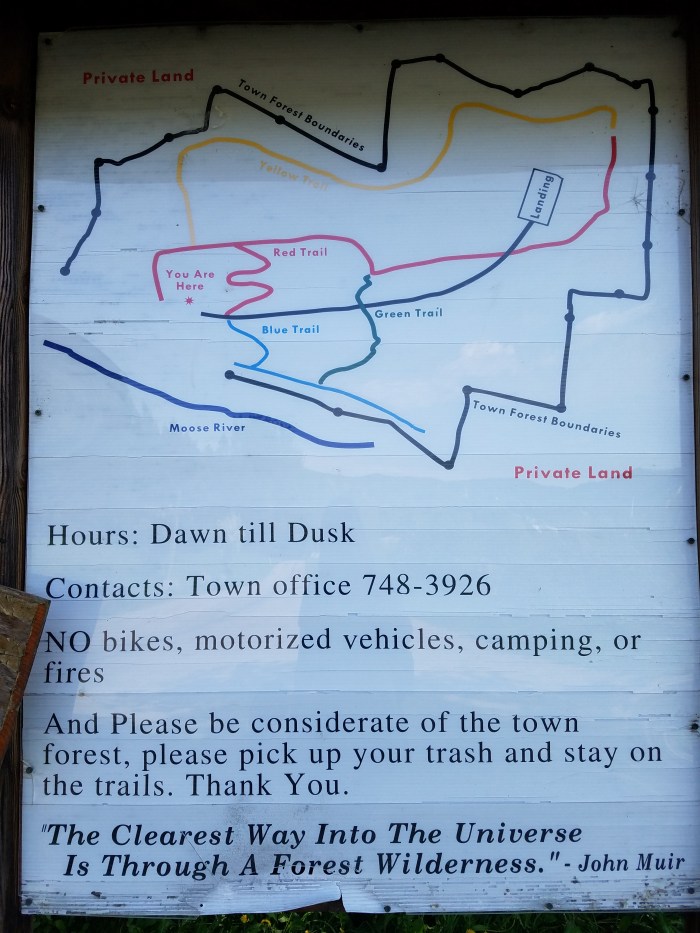 Private Land
Town Forest Boundaries
Yellow Trail
Landing
Red Trail
You Are
Here
Green Trail
Blue Trail
Town Forest Boundaries
Moose River
Private Land
Hours: Dawn till Dusk
Contacts: Town office 748-3926
NO bikes, motorized vehicles, camping, or
fires
And Please be considerate of the town
forest, please pick up your trash and stay on
the trails. Thank You.
"The Clearest Way Into The Universe
Is Through A Forest Wilderness." - John Muir